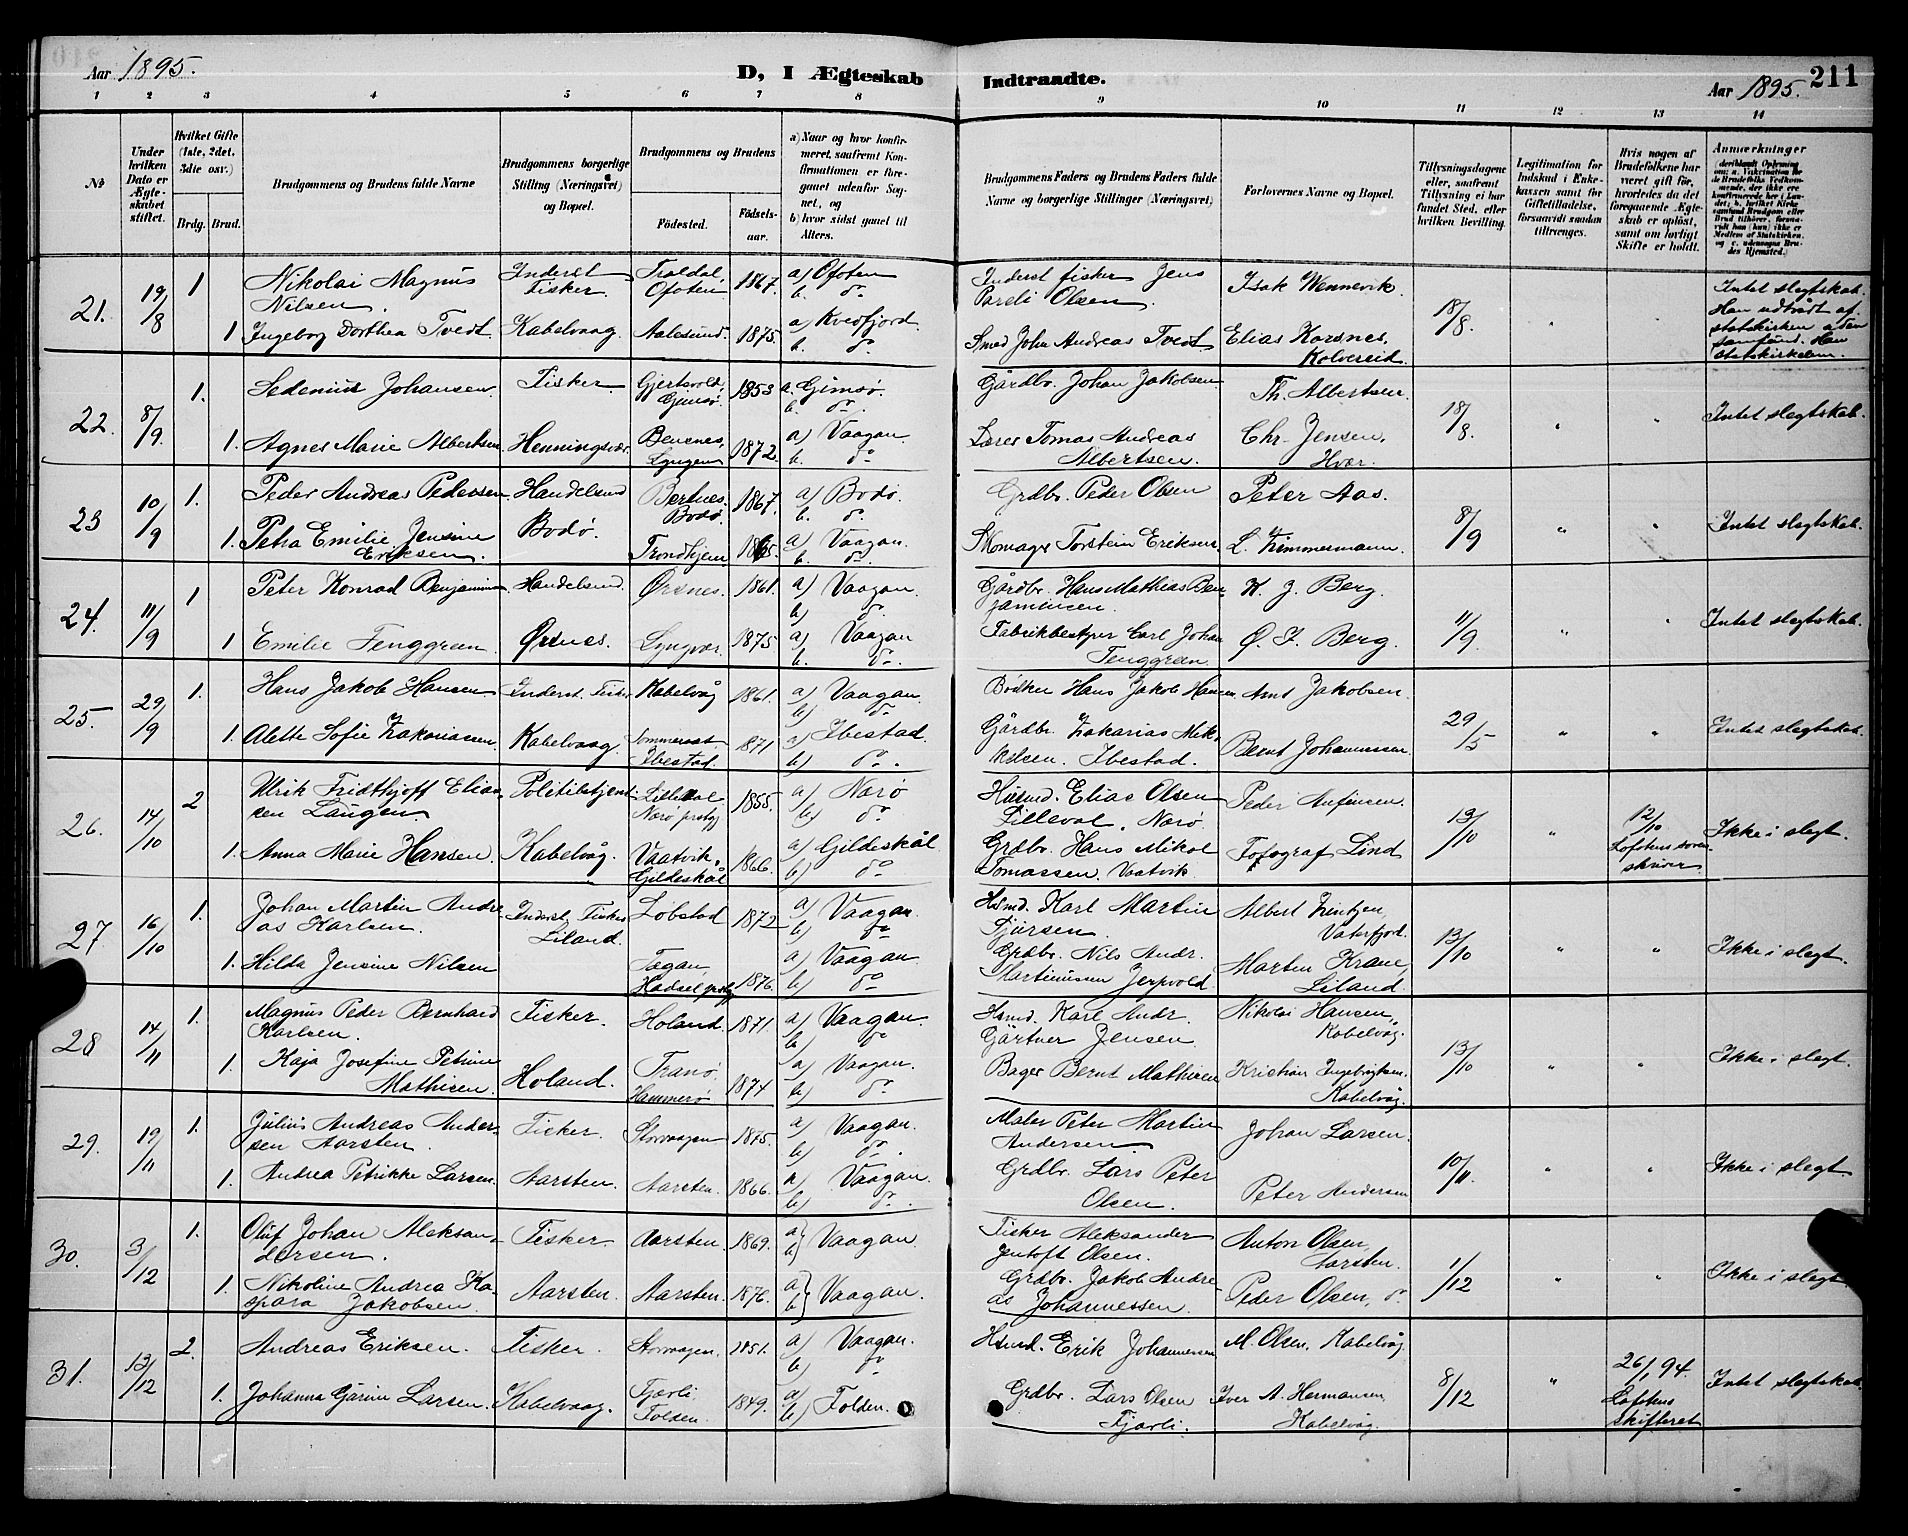 Aar 1895.
D, I Ægteskab
Indtraadte.
Aar 1895.
211
1 2 3 4 5 6 7 8 9 10 11 12 13 14
No
Under hvilken Dato er Ægteskabet stiftet.
Hvilket Gifte (1ste, 2det, 3die osv.)
Brdg. Brud.
Brudgommens og Brudens fulde Navne
Brudgommens borgerlige Stilling (Næringsvei) og Bopæl.
Brudgommens og Brudens
Fødested.
Fødselsaar.
a) Naar og hvor konfirmeret, saafremt Konfirmationen er foregaaet udenfor Sognet, og
b) hvor sidst gaaet til Alters.
Brudgommens Faders og Brudens Faders fulde Navne og borgerlige Stillinger (Næringsvei)
Forlovernes Navne og Bopæl.
Tillysningsdagene eller, saafremt Tillysning ei har fundet Sted, efter hvilken Bevilling.
Legitimation for Indskud i Enkekassen samt for Giftetilladelse, forsaavidt saadan tiltrænges.
Hvis nogen af Brudefolkene har været gift før, hvorledes da det foregaaende Ægteskab er opløst, samt om lovligt Skifte er holdt.
Anmærkninger
21. 19/8 1 Nikolai Magnus Nilsen. Inderst Fisker. Troldal Ofoten 1867. a) Ofoten b. do Inderst fisker Jens Pareli Olsen. Isak Wennevik. 18/8. " " Intet slegtskab. Han udtrådt af statskirken uden samfund. Hun statskirkelem.
1 Ingeborg Dorthea Tvedt Kabelvaag. Aalesund. 1875. a) Kvedfjord. b. do Smed John Andreas Tvedt. Elias Korsnes, Kolvereid.
22. 8/9. 1. Sedenius Johansen. Fisker Gjertsvold, Gimsø. 1853 a. Gimsø. b. do. Gårdbr. Johan Jakobsen Th. Albertsen. 18/8. " " Intet slegtskab.
1. Agnes Marie Albertsen Henningsvær. Benenes, Lyngen 1872. a) Vaagan. b. do Lærer Tomas Andreas Albertsen. Chr. Jensen, Hvær.
23 10/9 1. Peder Andreas Pedersen Handelsmd Bertnes. Bodø. 1867. a) Bodø. b. do. Grdbr. Peder Olsen Peter Aas. 8/9 " " Intet slegtskab.
1. Petra Emilie Jensine Eriksen. Bodø. Trondhjem a) Vaagan. b) do. Skomager Torstein Eriksen. L. Zimmermann.
24. 11/9 1 Peter Konrad Benjaminsen Handelsmd. Ørsnes. 1861. a) Vaagan. b) do. Gårdbr. Hans Mathias Benjaminsen. K. J. Berg. 11/9. " " Intet slegtskab.
1 Emilie Tenggreen. Ørsnes. Lyngvær. 1875 a) Vaagan b. do. Fabrikbestyrer Carl Johan Tenggreen. Ø. J. Berg.
25. 29/9 1. Hans Jakob Hansen Inderst. Fisker Kabelvåg 1861. a) Vaagan. b) do Bødker Hans Jakob Hansen. Arnt Jakobsen 29/5 " " Intet slegtskab.
1. Alette Sofie Zakariassen. Kabelvaag. Sommerset Ibestad. 1871 a) Ibestad. b) do. Gårdbr. Zakarias Mikkelsen. Ibestad. Bernt Johannessen
26. 14/10 2 Ulrik Fridthjoff Eliassen Laugen Politibetjent Lilleval Nærø prstgj 1855. a) Nærø b) do Husmd. Elias Olsen Lilleval. Nærø. Peder Anfinsen. 13/10 " 12/10 Lofotens sorenskriver Ikke i slegt.
1. Anna Marie Hansen. Kabelvåg. Vaatvik. Gildeskål 1866. a) Gildeskål b) do Grdbr. Hans Mikal Tomassen. Vaatvik. Fotograf Lind
27 16/10 1. Johan Martin Andreas Karlsen. Inderst. Fisker Liland. Løbstad 1872 a) Vaagan. b) do Hsmd. Karl Martin Sjursen. Albert Zintzen, Vaterfjord. 13/10 " " Ikke i slegt.
1. Hilda Jensine Nilsen Hadsel prstgj 1876. a) Vaagan b) do Grdbr. Nils Andr. Martinussen Jerpvold Marten Krane, Liland.
28 14/11 1. Magnus Peder Bernhard Karlsen. Fisker. Holand. 1871. a) Vaagan. b) do Hsmd. Karl Andr. Gärtner Jensen Nikolai Hansen, Kabelvåg. 13/10 " " Ikke i slegt.
1. Kaja Josefine Petrine Mathisen. Holand. Tranø Hammerø 1874 a) Vaagan. b) do. Bager Bernt Mathisen Kristian Ingebrigtsen. Kabelvåg.
29. 19/11 1. Julius Andreas Andersen Aarsten. Fisker. Storvaagen 1875. a) Vaagan. b) do. Maler Peter Martin Andersen Johan Larsen. 10/11. " " Ikke i slegt.
1. Andrea Petrikke Larsen. Aarsten. Aarsten. 1866. a) Vaagan. b) do. Grdbr. Lars Peter Olsen. Peter Andersen
30. 3/12 1. Oluf Johan Aleksandersen. Fisker. Aarsten. 1869. a) b) Vaagan. Fisker Aleksander Jentoft Olsen. Anton Olsen, Aarsten. 1/12 " " Ikke i slegt
1. Nikoline Andrea Kaspara Jakobsen. Aarsten. Aarsten. 1876. a) b) Vaagan. Grdbr. Jakob Andreas Johannessen. Peder Olsen, do.
31. 13/12 2. Andreas Eriksen. Fisker. Storvaagen. 1851. a) Vaagan. b) do Hsmd. Erik Johannessen M. Olsen, Kabelvåg 8/12 " 26/1 94. Lofotens Skifteret Intet slegtskab.
1. Johanna Garine Larsen. Kabelvaag. Fjærli Folden. 1849. a) b) Folden. Grdbr. Lars Olsen Fjærli. Iver A. Hermansen, Kabelvåg.